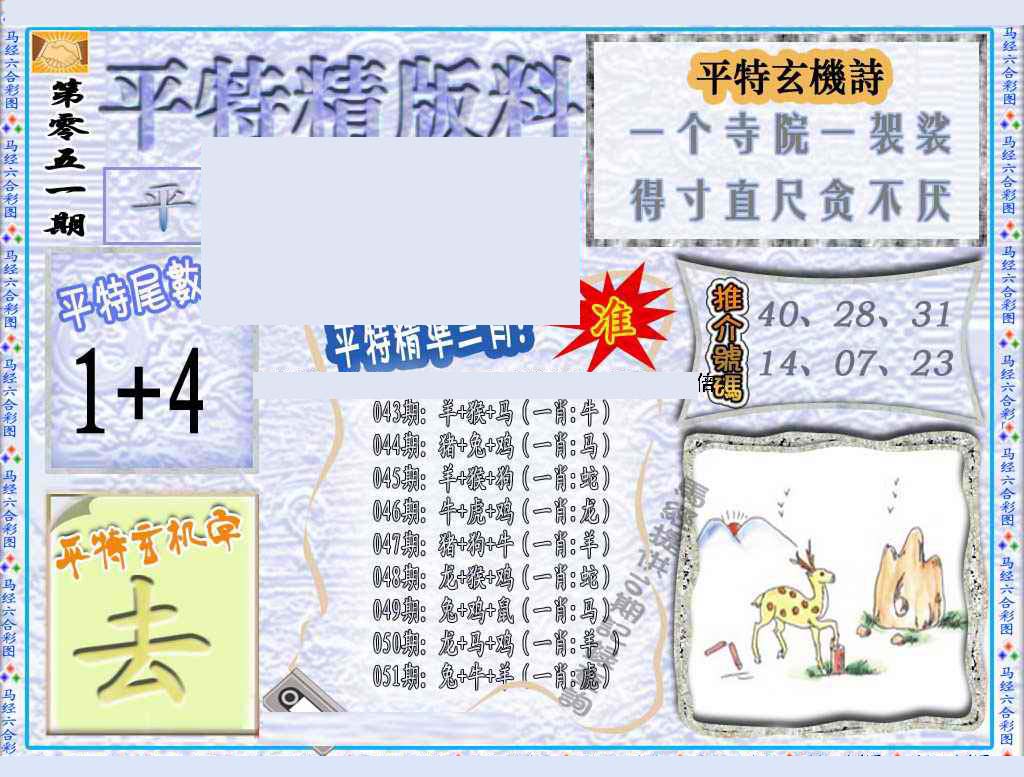 第零五一期
平特精版料
平
平特玄機詩
一个寺院一袈裟
得寸直尺贪不厌
平特尾數
1+4
准
推介號碼
40、28、31
14、07、23
043期: 羊+猴+马(一肖:牛)
044期: 猪+兔+鸡(一肖:马)
045期: 羊+猴+狗(一肖:蛇)
046期: 牛+虎+鸡(一肖:龙)
047期: 猪+狗+牛(一肖:羊)
048期: 龙+猴+鸡(一肖:蛇)
049期: 兔+鸡+鼠(一肖:马)
050期: 龙+马+鸡(一肖:羊 )
051期: 兔+牛+羊(一肖:虎)
平特玄机字
去
马经六合彩图
马经六合彩图
马经六合彩图
马经六合彩图
马经六合彩图
马经六合彩图
马经六合彩
马经六合彩图
马经六合彩图
马经六合彩图
马经六合彩图
马经六合彩图
马经六合彩图
马经六合彩图